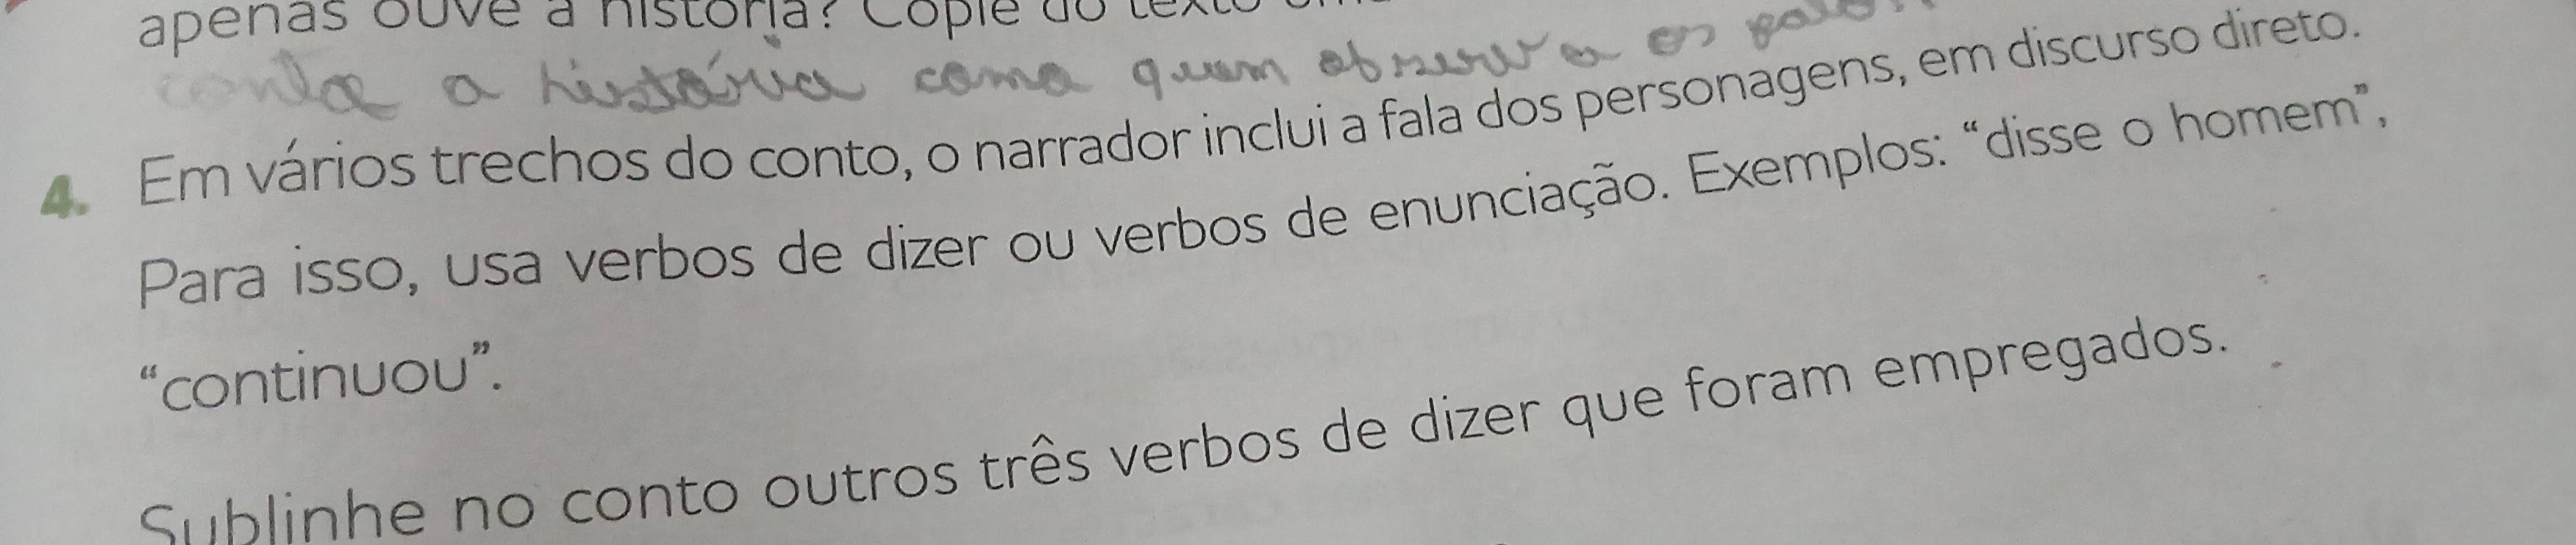 apenas ouve a história? Copie do texto
conta a história como quem observa os
4. Em vários trechos do conto, o narrador inclui a fala dos personagens, em discurso direto.
Para isso, usa verbos de dizer ou verbos de enunciação. Exemplos: “disse o homem”,
“continuou”.
Sublinhe no conto outros três verbos de dizer que foram empregados.